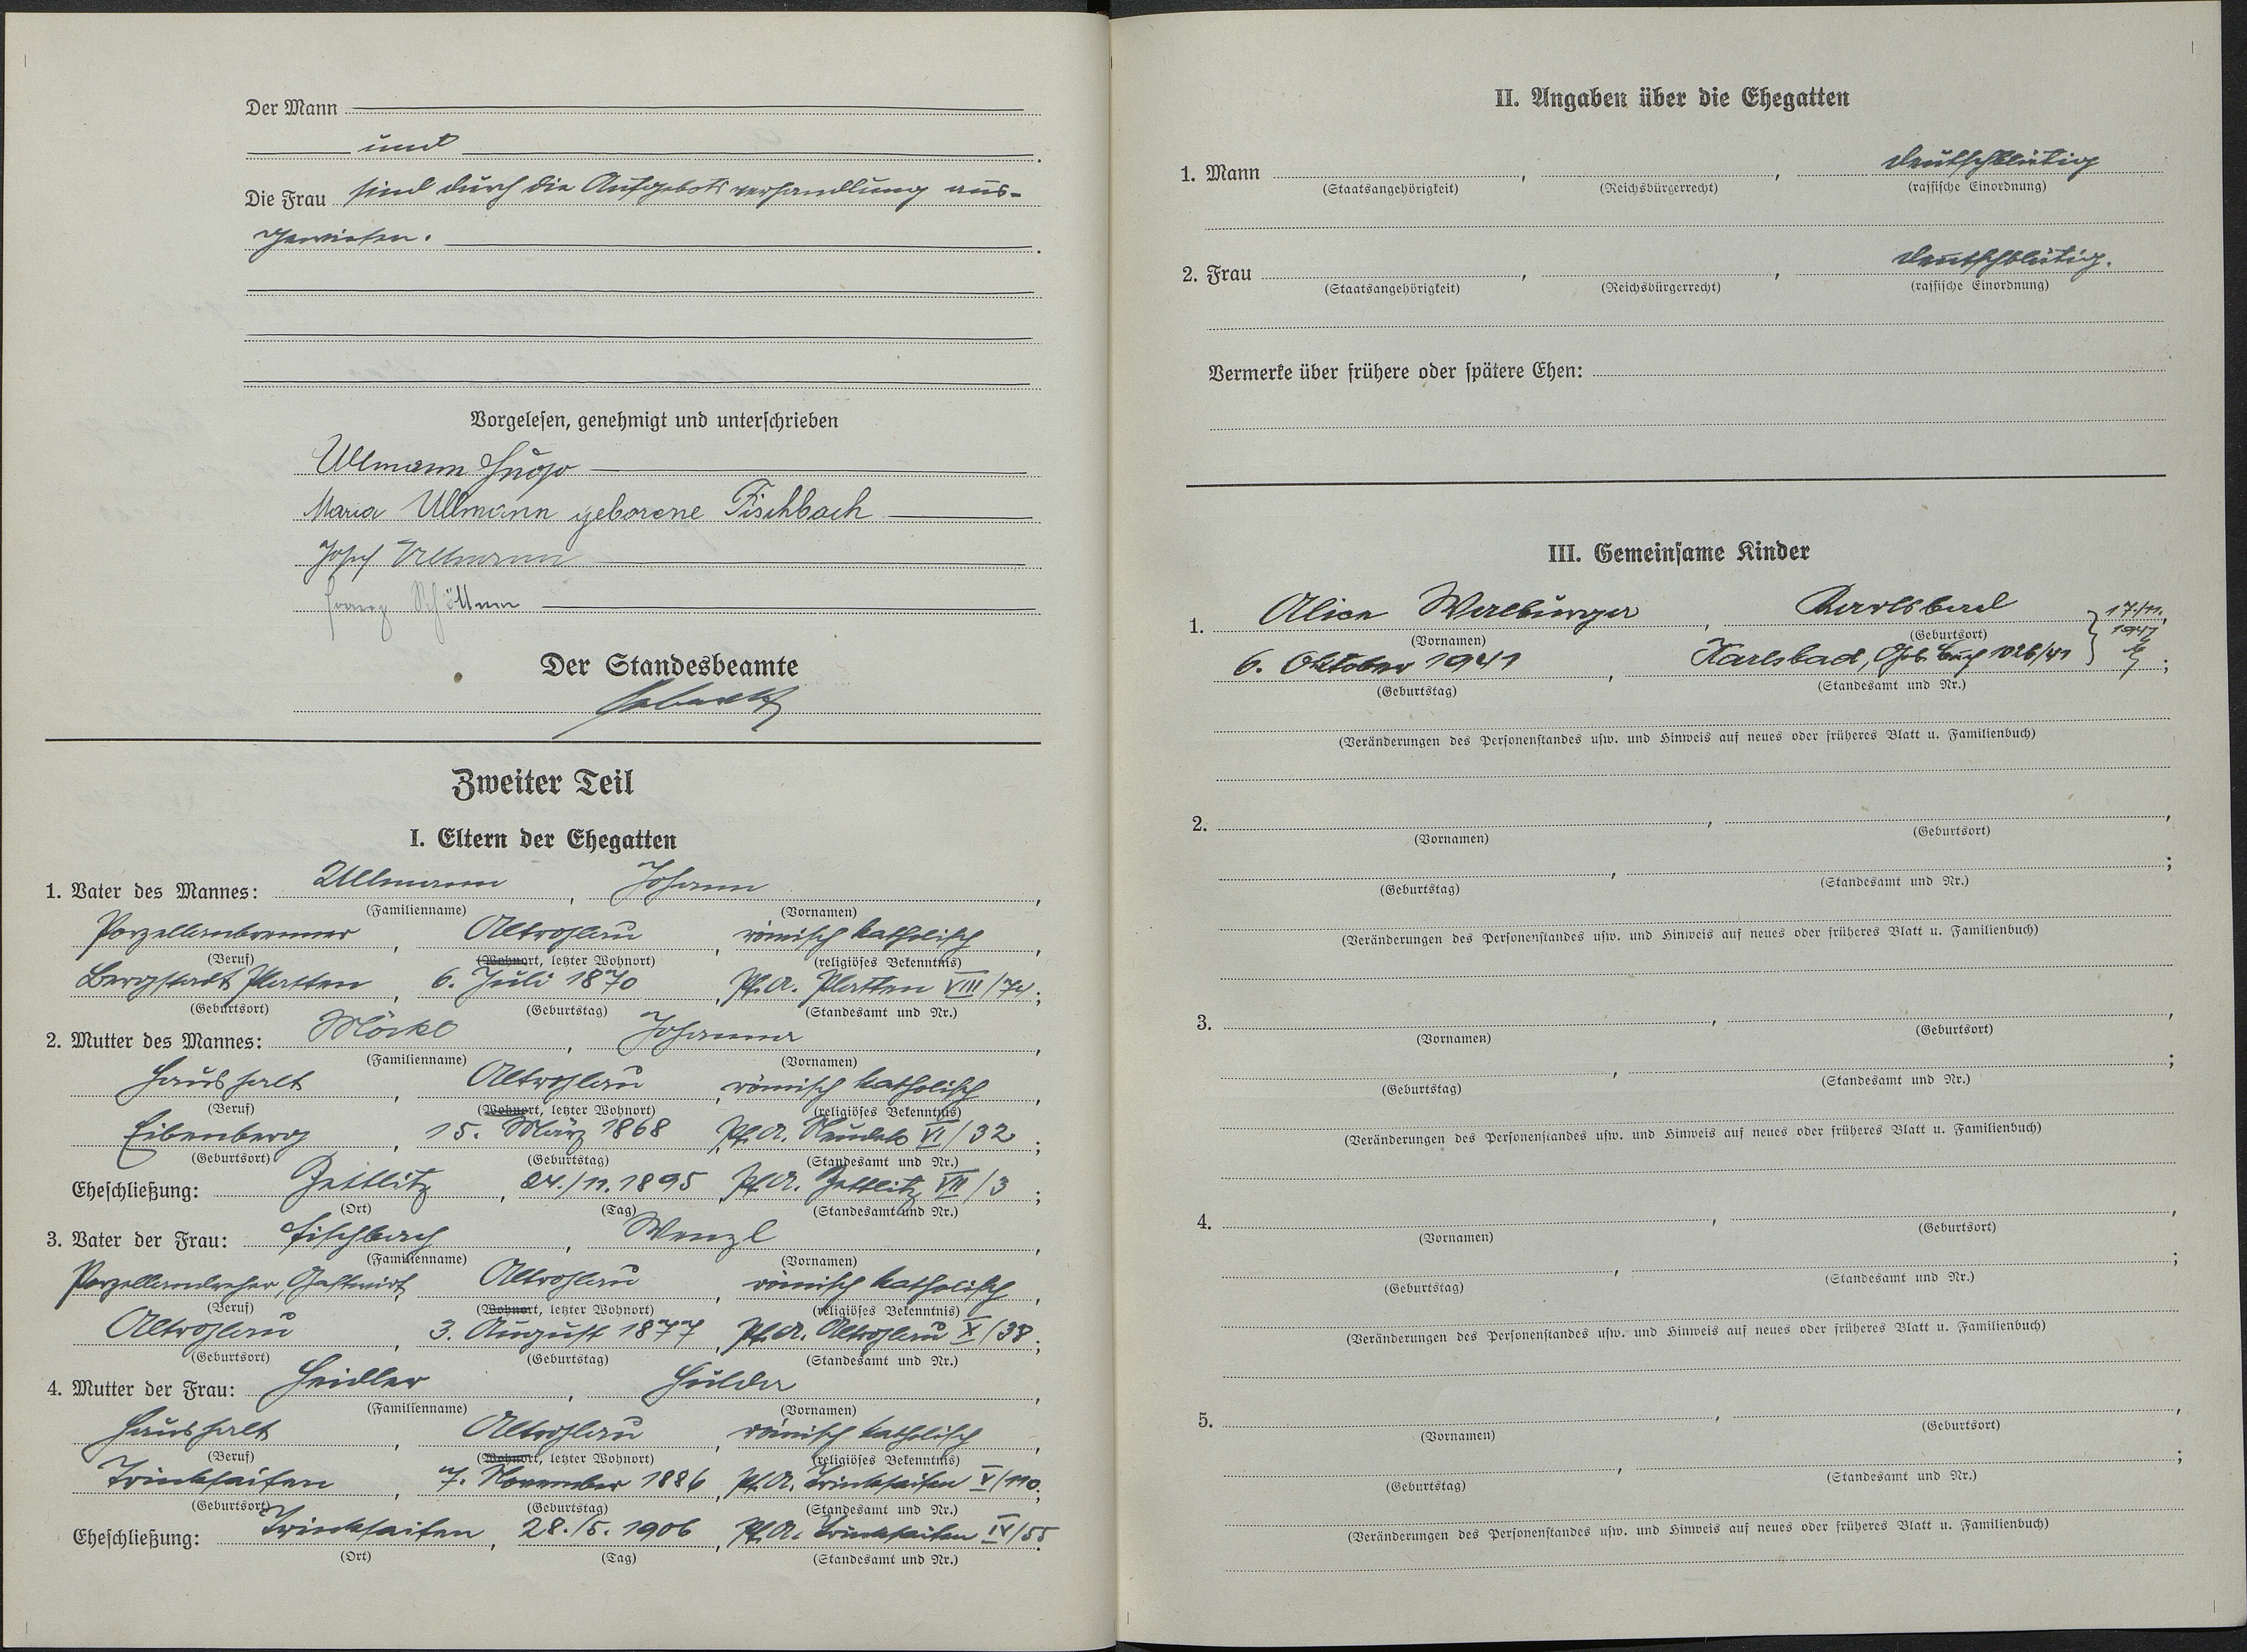 Der Mann
und
Die Frau sind durch die Aufgebotsverhandlung aus-
gewiesen.
Vorgelesen, genehmigt und unterschrieben
Ullmann Hugo
Maria Ullmann geborene Fischbach
Josef Ullmann
Franz
Der Standesbeamte
Zweiter Teil
I. Eltern der Ehegatten
1. Vater des Mannes: Ullmann, Johann,
(Familienname) (Vornamen)
Porzellanbrenner, Altrohlau, römisch katholisch,
(Beruf) (Wohnort, letzter Wohnort) (religiöses Bekenntnis)
Bergstadt Platten, 6. Juli 1870, Pf.A. Platten VIII/74;
(Geburtsort) (Geburtstag) (Standesamt und Nr.)
2. Mutter des Mannes: Möckl, Johanna,
(Familienname) (Vornamen)
Haushalt, Altrohlau, römisch katholisch,
(Beruf) (Wohnort, letzter Wohnort) (religiöses Bekenntnis)
Eibenberg, 15. März 1868, Pf.A. Neudek VI/32;
(Geburtsort) (Geburtstag) (Standesamt und Nr.)
Eheschließung: Zettlitz, 24./11.1895, Pf.A. Zettlitz VII/3;
(Ort) (Tag) (Standesamt und Nr.)
3. Vater der Frau: Fischbach, Wenzl,
(Familienname) (Vornamen)
Porzellandreher, Gastwirt, Altrohlau, römisch katholisch,
(Beruf) (Wohnort, letzter Wohnort) (religiöses Bekenntnis)
Altrohlau, 3. August 1877, Pf.A. Altrohlau X/38;
(Geburtsort) (Geburtstag) (Standesamt und Nr.)
4. Mutter der Frau: Heidler, Hulda,
(Familienname) (Vornamen)
Haushalt, Altrohlau, römisch katholisch,
(Beruf) (Wohnort, letzter Wohnort) (religiöses Bekenntnis)
Trinkseifen, 7. November 1886, Pf.A. Trinkseifen V/110;
(Geburtsort) (Geburtstag) (Standesamt und Nr.)
Eheschließung: Trinkseifen, 28./5. 1906, Pf.A. Trinkseifen IV/55.
(Ort) (Tag) (Standesamt und Nr.)
II. Angaben über die Ehegatten
1. Mann , , deutschblütig
(Staatsangehörigkeit) (Reichsbürgerrecht) (rassische Einordnung)
2. Frau , , deutschblütig.
(Staatsangehörigkeit) (Reichsbürgerrecht) (rassische Einordnung)
Vermerke über frühere oder spätere Ehen:
III. Gemeinsame Kinder
1. Alice Walburga, Karlsbad 17./11.
(Vornamen) (Geburtsort) 1941
6. Oktober 1941, Karlsbad, Geb. Buch 1026/41;
(Geburtstag) (Standesamt und Nr.)
(Veränderungen des Personenstandes usw. und Hinweis auf neues oder früheres Blatt u. Familienbuch)
2. , ,
(Vornamen) (Geburtsort)
, ;
(Geburtstag) (Standesamt und Nr.)
(Veränderungen des Personenstandes usw. und Hinweis auf neues oder früheres Blatt u. Familienbuch)
3. , ,
(Vornamen) (Geburtsort)
, ;
(Geburtstag) (Standesamt und Nr.)
(Veränderungen des Personenstandes usw. und Hinweis auf neues oder früheres Blatt u. Familienbuch)
4. , ,
(Vornamen) (Geburtsort)
, ;
(Geburtstag) (Standesamt und Nr.)
(Veränderungen des Personenstandes usw. und Hinweis auf neues oder früheres Blatt u. Familienbuch)
5. , ,
(Vornamen) (Geburtsort)
, ;
(Geburtstag) (Standesamt und Nr.)
(Veränderungen des Personenstandes usw. und Hinweis auf neues oder früheres Blatt u. Familienbuch)